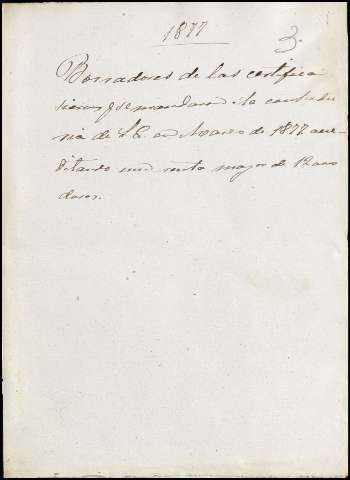 1877
3.
Borradores de las certifica
ciones q se mandaron a la contadu
ria de S.E. en Marzo de 1877 acre
ditando una renta mayor de 12